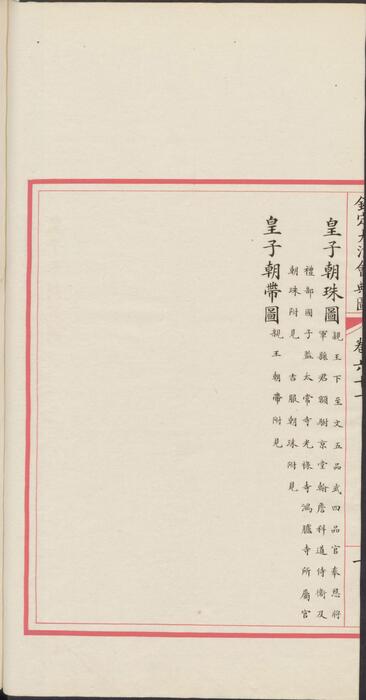 欽定大清會典圖 卷六十一
皇子朝珠圖
親王下至文五品武四品官奉恩將
軍縣君額駙京堂翰詹科道侍衛及
禮部國子監太常寺光祿寺鴻臚寺所屬官
朝珠附見 吉服朝珠附見
皇子朝帶圖
親王朝帶附見